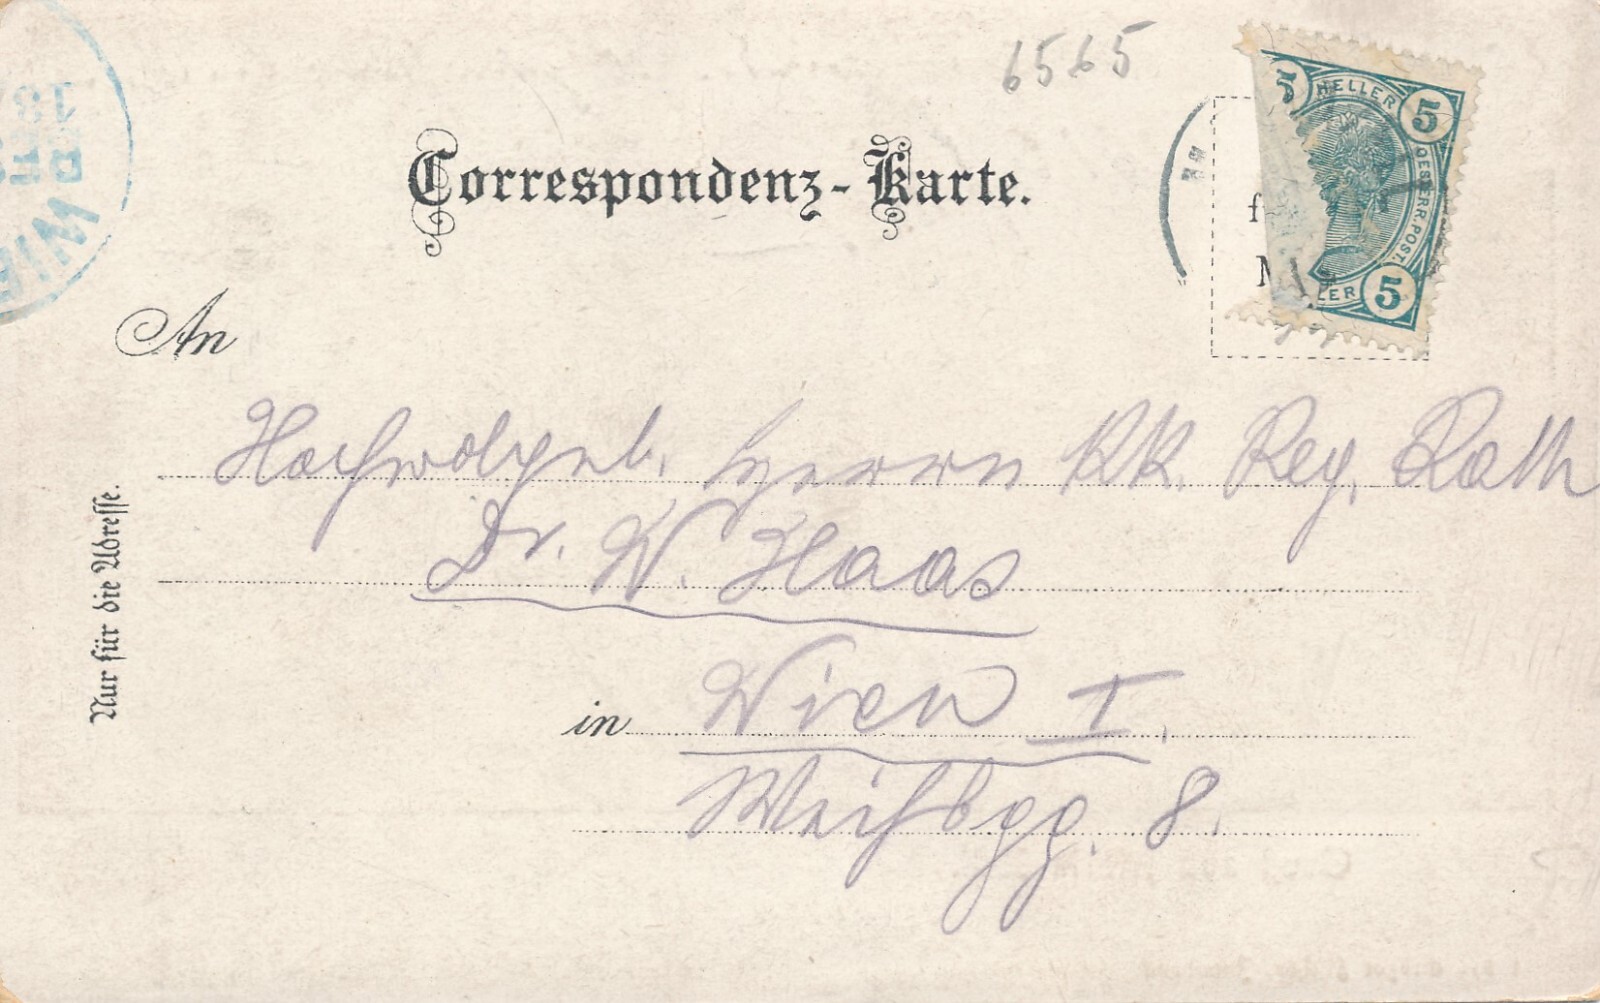 6565
Correspondenz-Karte.
5 HELLER 5
OESTERR. POST.
LER 5
WIE
18
An
Hochwolgeb. Herrn KK. Reg. Rath
Dr. W. Haas
in Wien I.
Weihbgg. 8.
Nur für die Adresse.